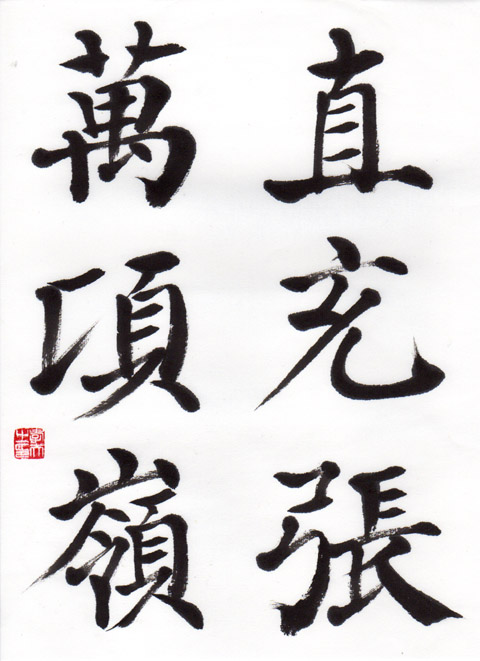 直充張
萬頃嶺